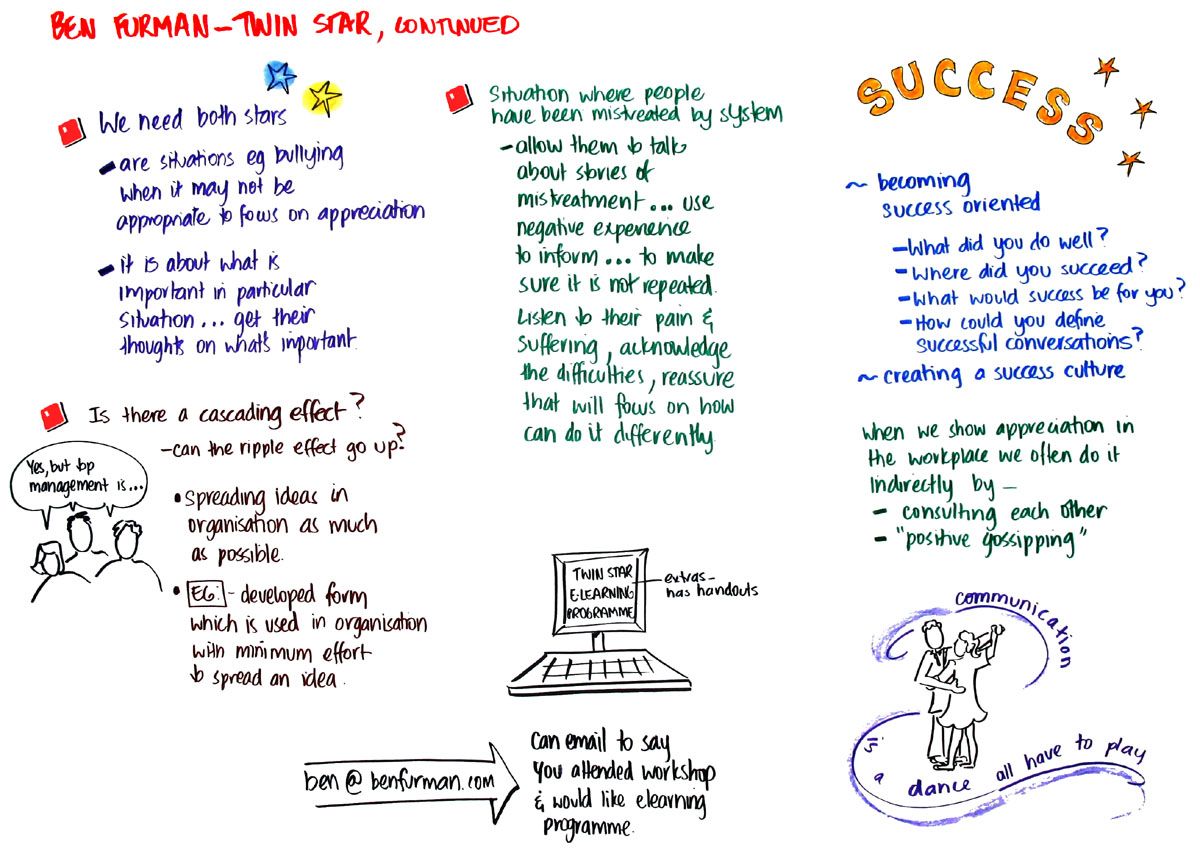 BEN FURMAN - TWIN STAR, CONTINUED
We need both stars
- are situations eg bullying
when it may not be
appropriate to focus on appreciation
- it is about what is
important in particular
situation... get their
thoughts on what's important.
Is there a cascading effect?
- can the ripple effect go up?
Yes, but top
management is...
• Spreading ideas in
organisation as much
as possible.
• EG: - developed form
which is used in organisation
with minimum effort
to spread an idea.
Situation where people
have been mistreated by system
- allow them to talk
about stories of
mistreatment... use
negative experience
to inform... to make
sure it is not repeated.
Listen to their pain &
suffering, acknowledge
the difficulties, reassure
that will focus on how
can do it differently.
TWIN STAR
E-LEARNING
PROGRAMME
extras -
has handouts
ben@benfurman.com
Can email to say
you attended workshop
& would like elearning
programme.
SUCCESS
~ becoming
success oriented
- What did you do well?
- Where did you succeed?
- What would success be for you?
- How could you define
successful conversations?
~ creating a success culture
When we show appreciation in
the workplace we often do it
indirectly by -
- consulting each other
- "positive gossipping"
communication
is a dance all have to play